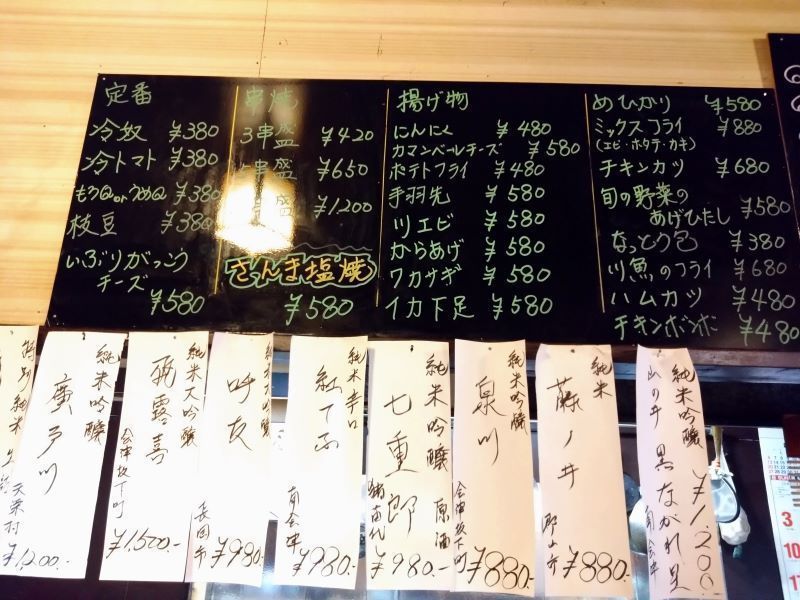 定番
冷奴 ¥380
冷トマト ¥380
もろQorうめQ ¥380
枝豆 ¥380
いぶりがっこ
チーズ
¥580
串焼
3串盛 ¥420
串盛 ¥650
盛 ¥1,200
さんま塩焼
¥580
揚げ物
にんにく ¥480
カマンベールチーズ ¥580
ポテトフライ ¥480
手羽先 ¥580
川エビ ¥580
からあげ ¥580
ワカサギ ¥580
イカ下足 ¥580
めひかり ¥580
ミックスフライ ¥880
(エビ・ホタテ・カキ)
チキンカツ ¥680
旬の野菜の
あげひたし ¥580
なっとう包 ¥380
川魚のフライ ¥680
ハムカツ ¥480
チキンボンボ ¥480
特別純米
天栄村
純米吟醸
廣戸川
¥1,200.-
純米大吟醸
飛露喜
会津坂下町
¥1,500.-
呼友
¥980.-
純米辛口
南会津
¥980.-
純米吟醸 原酒
七重郎
猪苗代
¥980.-
純米吟醸
泉川
会津坂下町
¥880.-
純米
藤ノ井
¥880.-
純米吟醸
山の井 黒ながれ星
南会津
¥1,200.-
3
10
17